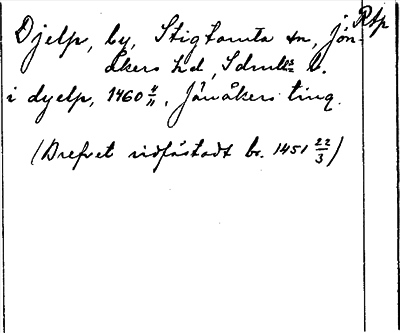 Rbp
Djelp, by, Stigtomta sn, Jön-
åkers hd, Sdmlds l.
i dyelp, 1460 4/11, Jönåkers ting.
(Brefvet vidfästadt br. 1451 22/3)